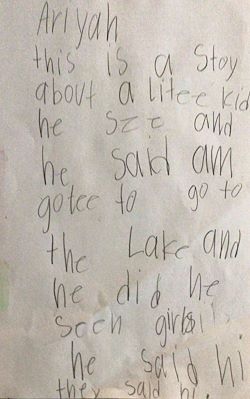 Ariyah
this is a Stoy
about a litee kid
he szc and
he said am
gotee to go to
the Lake and
he did he
seeh girls
he said hi
they said hi.